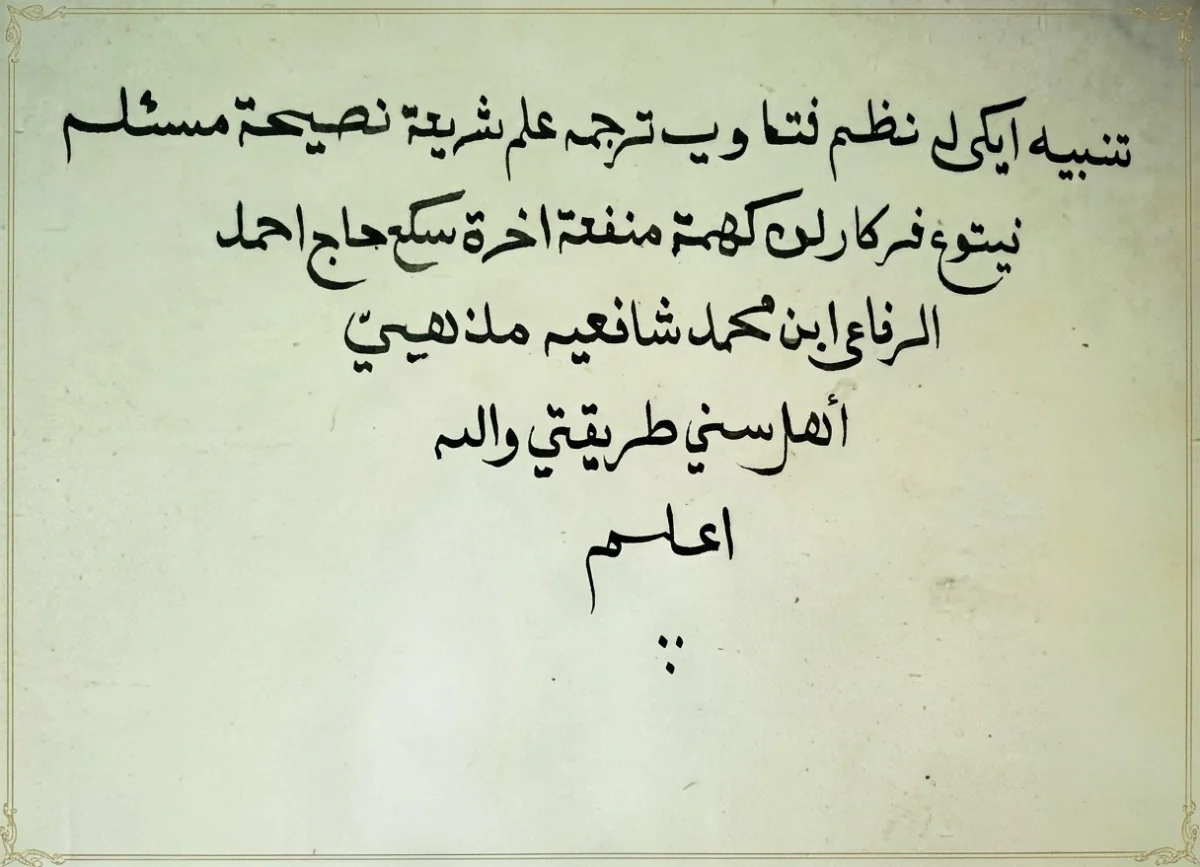 تنبيه ايكي له نظم فتاوي ترجمه علم شريعة نصيحة مسئلم
نيتوع فركارلن كهمة منفعة اخرة سكع حاج احمد
الرفاعى ابن محمد شافعيه مذهبيّ
أهل سني طريقتي والله
اعلم